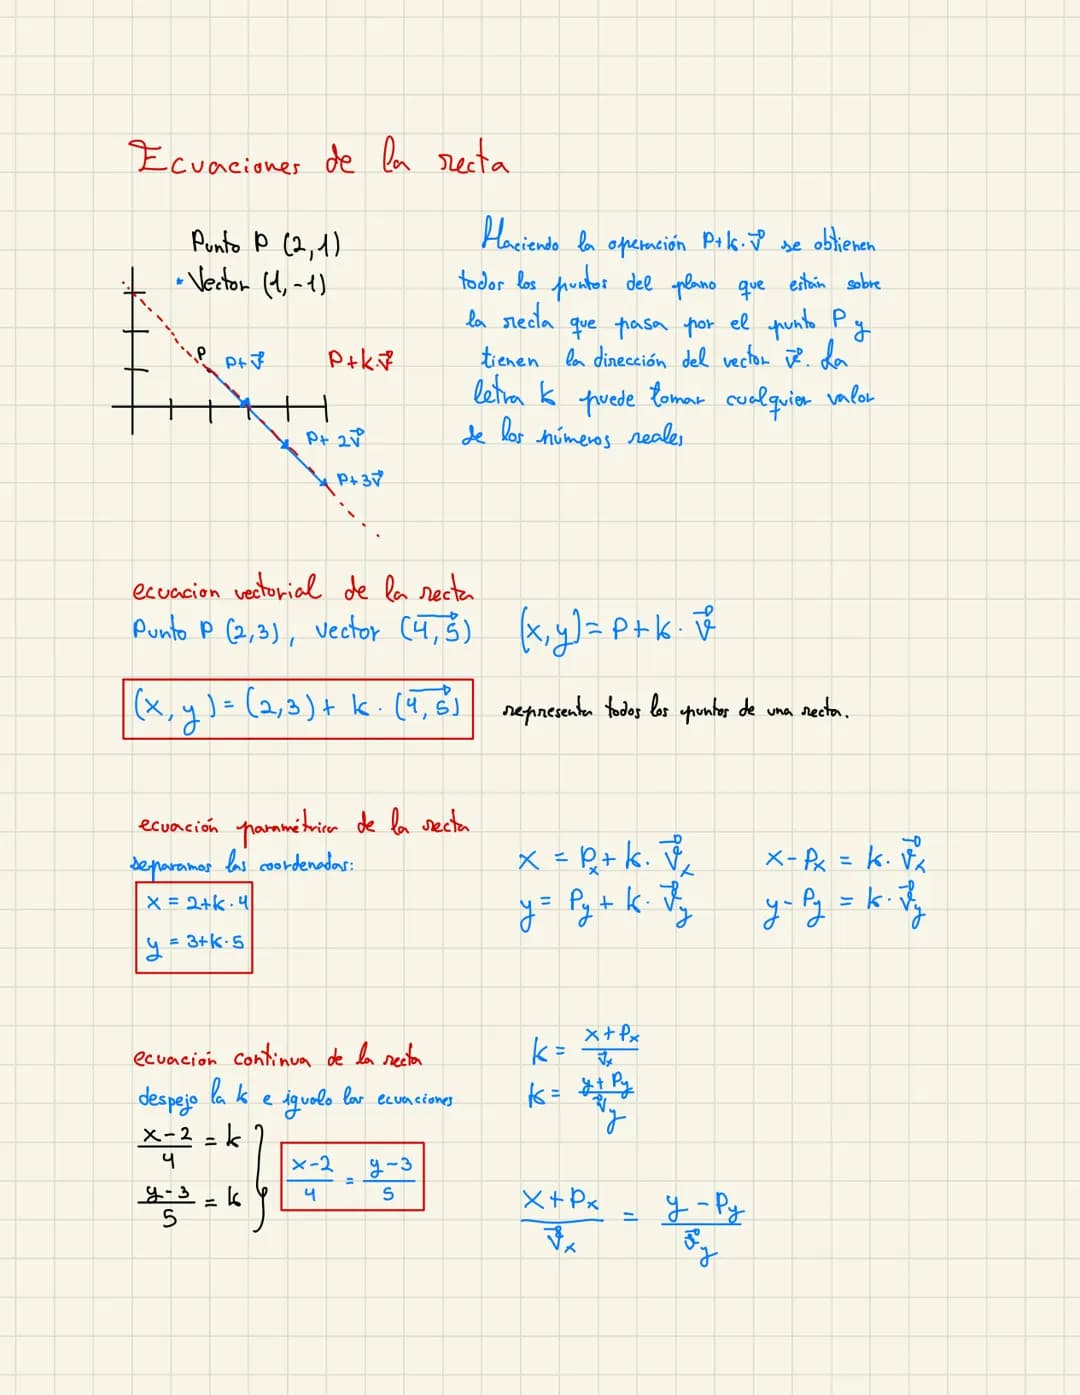 Ecuaciones de la recta
Punto P (2,1)
• Vector (1,-1)
P
P+v⃗
P+k.v⃗
P+ 2v⃗
P+3v⃗
Haciendo la operación P+k.v⃗ se obtienen
todos los puntos del plano que están sobre
la recta que pasa por el punto P y
tienen la dirección del vector v⃗. La
letra k puede tomar cualquier valor
de los números reales
ecuacion vectorial de la recta
Punto P (2,3), vector (4,5)
(x,y)= P+k. v⃗
(x,y)=(2,3)+ k. (4,5)
representa todos los puntos de una recta.
ecuación paramétrica de la recta
separamos las coordenadas:
x = 2+k.4
y = 3+k.5
x = Px+ k. v⃗x
y = Py + k. v⃗y
x-Px = k. v⃗x
y-Py = k. v⃗y
ecuación continua de la recta
despejo la k e igualo las ecuaciones
x-2/4 = k
y-3/5 = k
x-2/4 = y-3/5
k= x+Px/v⃗x
k= y+Py/v⃗y
x+Px/v⃗x = y-Py/v⃗y